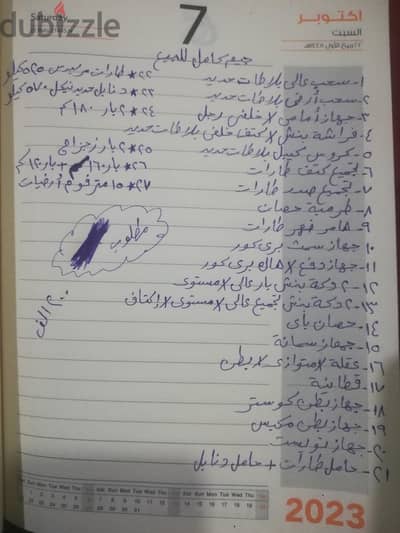 dubizzle
Saturday
7
اكتوبر
السبت
جيم كامل للبيع
١- سحب عالى بلاطات حديد
٢- سحب أرضى بلاطات حديد
٣- جهاز أمامى × خلفى رجل
٤- فراشة بنش × كتف خلفى بلاطات حديد
٥- كروس كيبل بلاطات حديد
٦- تجميع كتف طارات
٧- تجميع صدر طارات
٨- طرمبة حصان
٩- هامر ظهر طارات
١٠- جهاز سمث برى كور
١١- جهاز دفع × هاك برى كور
١٢- ٢ دكة بنش بار عالى × مستوى
١٣- ٢ دكة بنش تجميع عالى × مستوى × أكتاف
١٤- حصان باى
١٥- جهاز سمانة
١٦- عقلة × متوازى × بطن
١٧- قطاينة
١٨- جهاز بطن كوستر
١٩- جهاز بطن مكبس
٢٠- جهاز تويست
٢١- حامل طارات + حامل دنابل
٢٢* طارات
٢٣* دنابل حديد نيكل ٥٧٠ كيلو
٢٤* ٢ بار ١٨٠ كم
٢٥* ٢ بار زجزاجى
٢٦* بار ١٦٠ + بار ١٢٠ كم
٢٧* ١٥ متر فوم أرضيات
مطلوب
٢٠٠ الف
Sun Mon Tue Wed Thu Fri Sat
2023